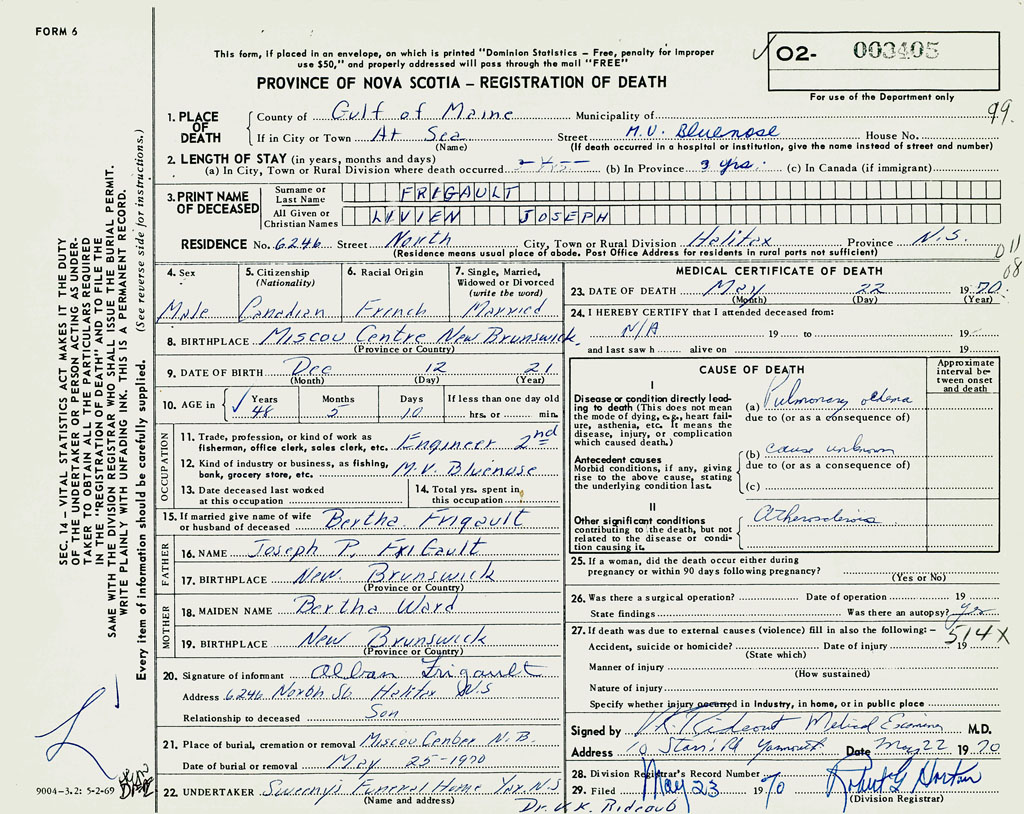 FORM 6
This form, if placed in an envelope, on which is printed "Dominion Statistics – Free, penalty for improper
use $50," and properly addressed will pass through the mail "FREE"
PROVINCE OF NOVA SCOTIA – REGISTRATION OF DEATH
O2- 003405
For use of the Department only
99.
1. PLACE OF DEATH
County of Gulf of Maine Municipality of
If in City or Town At Sea Street M.V. Bluenose House No.
(Name) (If death occurred in a hospital or institution, give the name instead of street and number)
2. LENGTH OF STAY (in years, months and days)
(a) In City, Town or Rural Division where death occurred (b) In Province 9 yrs. (c) In Canada (if immigrant)
3. PRINT NAME OF DECEASED
Surname or Last Name FRIGAULT
All Given or Christian Names LIVIEN JOSEPH
RESIDENCE No. 6246 Street North City, Town or Rural Division Halifax Province N.S.
(Residence means usual place of abode. Post Office Address for residents in rural parts not sufficient)
011
08
4. Sex 5. Citizenship (Nationality) 6. Racial Origin 7. Single, Married, Widowed or Divorced (write the word)
Male Canadian French Married
8. BIRTHPLACE Miscou Centre New Brunswick.
(Province or Country)
9. DATE OF BIRTH Dec 12 21
(Month) (Day) (Year)
10. AGE in Years Months Days If less than one day old
48 5 10 hrs. or min.
OCCUPATION
11. Trade, profession, or kind of work as
fisherman, office clerk, sales clerk, etc. Engineer 2nd
12. Kind of industry or business, as fishing,
bank, grocery store, etc. M.V. Bluenose
13. Date deceased last worked
at this occupation
14. Total yrs. spent in
this occupation
15. If married give name of wife
or husband of deceased Bertha Frigault
FATHER
16. NAME Joseph P. FriGault
17. BIRTHPLACE New Brunswick
(Province or Country)
MOTHER
18. MAIDEN NAME Bertha Ward
19. BIRTHPLACE New Brunswick
(Province or Country)
20. Signature of informant Alban Frigault
Address 6246 North St. Halifax N.S
Relationship to deceased Son
21. Place of burial, cremation or removal Miscou Center N.B.
Date of burial or removal May 25-1970
22. UNDERTAKER Sweeny's Funeral Home Yar. N.S
(Name and address)
MEDICAL CERTIFICATE OF DEATH
23. DATE OF DEATH May 22 1970.
(Month) (Day) (Year)
24. I HEREBY CERTIFY that I attended deceased from:
N/A 19 to 19
and last saw h alive on 19
CAUSE OF DEATH
Approximate interval between onset and death
I
Disease or condition directly leading
to death (This does not mean
the mode of dying, e.g., heart failure,
asthenia, etc. It means the
disease, injury, or complication
which caused death.)
(a) Pulmonary edema
due to (or as a consequence of)
Antecedent causes
Morbid conditions, if any, giving
rise to the above cause, stating
the underlying condition last.
(b) cause unknown
due to (or as a consequence of)
(c)
II
Other significant conditions
contributing to the death, but not
related to the disease or condition
causing it.
25. If a woman, did the death occur either during
pregnancy or within 90 days following pregnancy?
(Yes or No)
26. Was there a surgical operation? Date of operation 19
State findings Was there an autopsy? Yes
27. If death was due to external causes (violence) fill in also the following: – 514X
Accident, suicide or homicide? Date of injury 19
(State which)
Manner of injury
(How sustained)
Nature of injury
Specify whether injury occurred in industry, in home, or in public place
Signed by V.K. Rideout Medical Examiner M.D.
Address 10 Starrs Rd Yarmouth Date May 22 1970
28. Division Registrar's Record Number
29. Filed May 23 1970 Robert G Horton
(Division Registrar)
Dr. V. K. Rideout
SEC. 14 – VITAL STATISTICS ACT MAKES IT THE DUTY
OF THE UNDERTAKER OR PERSON ACTING AS UNDER-
TAKER TO OBTAIN ALL THE PARTICULARS REQUIRED
IN THE "REGISTRATION OF DEATH" AND TO FILE THE
SAME WITH THE DIVISION REGISTRAR WHO SHALL ISSUE THE BURIAL PERMIT.
WRITE PLAINLY WITH UNFADING INK. THIS IS A PERMANENT RECORD.
Every item of information should be carefully supplied. (See reverse side for instructions.)
9004-3.2: 5-2-69